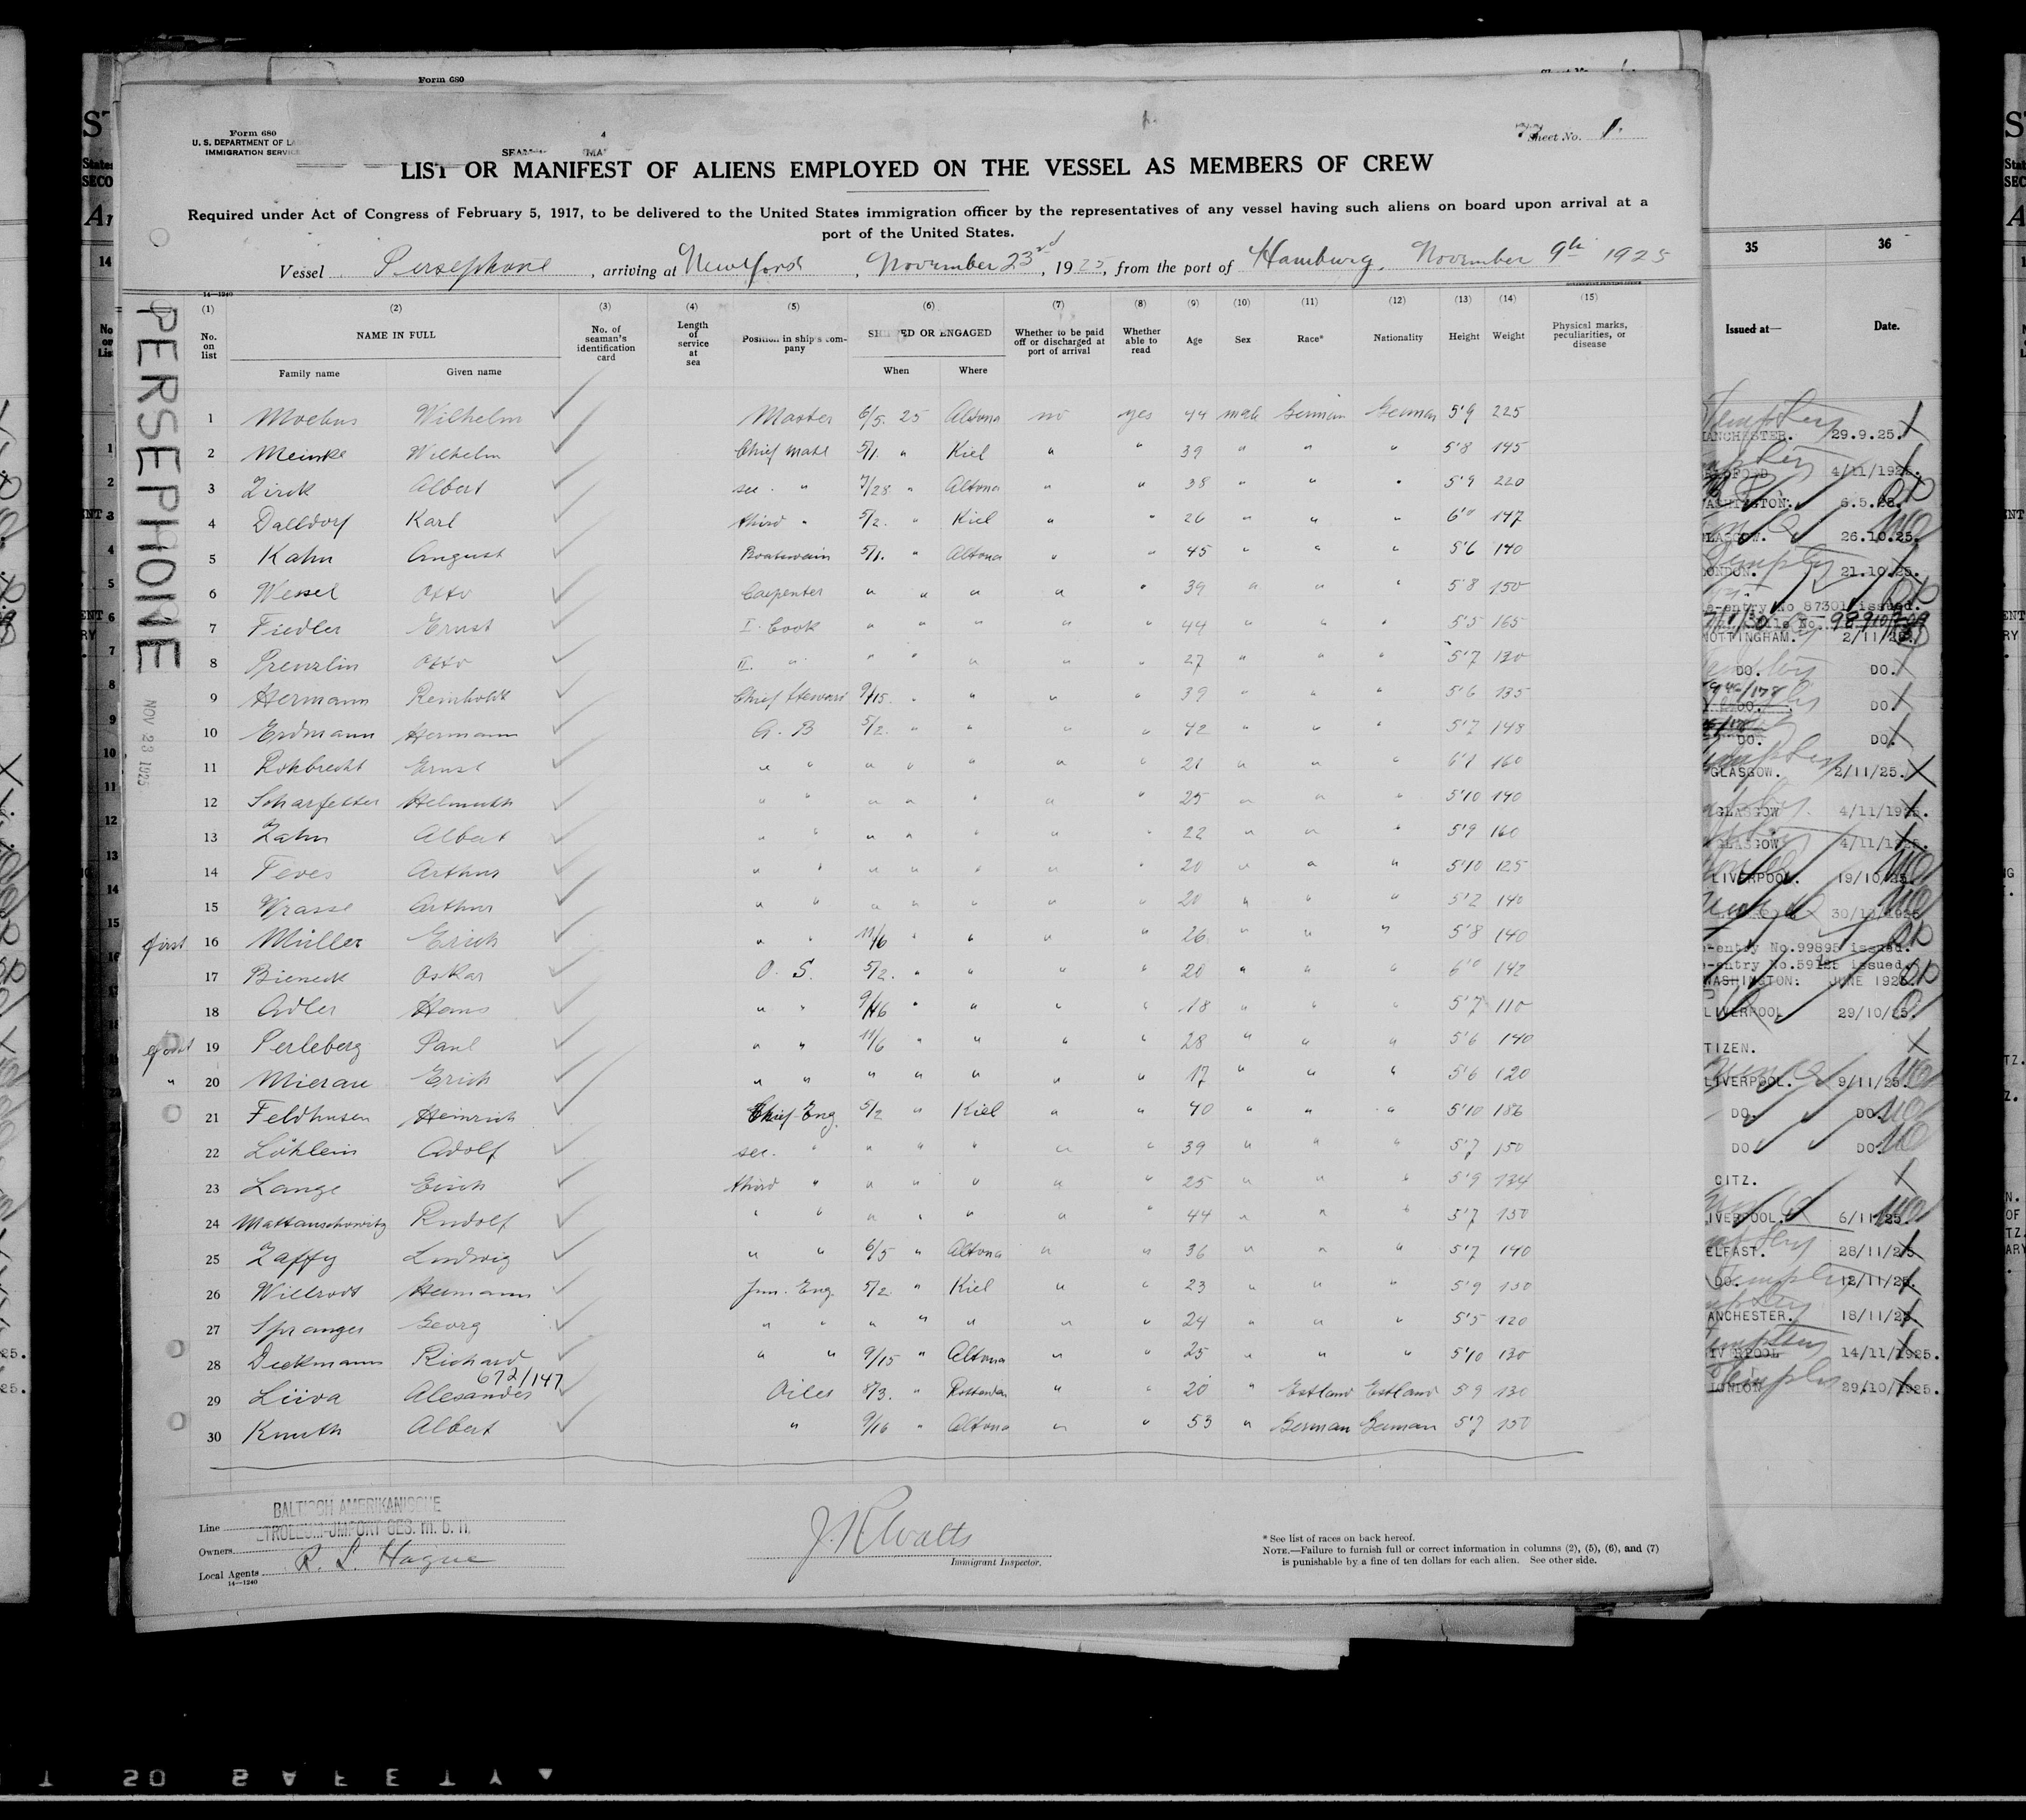 Form 680
Form 680
U. S. DEPARTMENT OF LA
IMMIGRATION SERVICE
Sheet No. 1.
LIST OR MANIFEST OF ALIENS EMPLOYED ON THE VESSEL AS MEMBERS OF CREW
Required under Act of Congress of February 5, 1917, to be delivered to the United States immigration officer by the representatives of any vessel having such aliens on board upon arrival at a
port of the United States.
Vessel Persephone, arriving at New York, November 23rd, 1925, from the port of Hamburg, November 9th 1925
14—1240
(1) (2) (3) (4) (5) (6) (7) (8) (9) (10) (11) (12) (13) (14) (15)
No. on list NAME IN FULL Family name Given name No. of seaman's identification card Length of service at sea Position in ship's company SHIPPED OR ENGAGED When Where Whether to be paid off or discharged at port of arrival Whether able to read Age Sex Race* Nationality Height Weight Physical marks, peculiarities, or disease
PERSEPHONE
NOV 23 1925
1 Moebus Wilhelm Master 6/5. 25 Altona no yes 44 male German German 5'9 225
2 Meinke Wilhelm Chief mate 5/1. " Kiel " " 39 " " " 5'8 145
3 Zirck Albert sec. " 7/28 " Altona " " 38 " " " 5'9 220
4 Dalldorf Karl third " 5/2. " Kiel " " 26 " " " 6'0 147
5 Kahn August Boatswain 5/1. " Altona " " 45 " " " 5'6 140
6 Wessel Otto Carpenter " " " " " 39 " " " 5'8 150
7 Fiedler Ernst I. Cook " " " " " 44 " " " 5'5 165
8 Prenzlin Otto II. " " " " " " 27 " " " 5'7 130
9 Hermann Reinholdt Chief Steward 9/15. " " " " 39 " " " 5'6 135
10 Erdmann Hermann A. B 5/2. " " " " 42 " " " 5'7 148
11 Rohbrecht Ernst " " " " " " " 21 " " " 6'1 160
12 Scharfetter Helmuth " " " " " " " 25 " " " 5'10 140
13 Zahn Albert " " " " " " " 22 " " " 5'9 160
14 Feves Arthur " " " " " " " 20 " " " 5'10 125
15 Wrasse Arthur " " " " " " " 20 " " " 5'2 140
first 16 Müller Erich " " 11/6 " " " " 26 " " " 5'8 140
17 Bieneck Oskar O. S. 5/2. " " " " 20 " " " 6'0 142
18 Adler Hans " " 9/16 " " " " 18 " " " 5'7 110
first 19 Perleberg Paul " " 11/6 " " " " 28 " " " 5'6 140
" 20 Mierau Erich " " " " " " " 17 " " " 5'6 120
21 Feldhusen Heinrich Chief Eng. 5/2 " Kiel " " 40 " " " 5'10 186
22 Löhlein Adolf sec. " " " " " " 39 " " " 5'7 150
23 Lange Erich third " " " " " " 25 " " " 5'9 134
24 Mattauschowitz Rudolf " " " " " " " 44 " " " 5'7 150
25 Zaffy Ludwig " " 6/5 " Altona " " 36 " " " 5'7 140
26 Willrodt Hermann Jun. Eng. 5/2 " Kiel " " 23 " " " 5'9 130
27 Spranger Georg " " " " " " " 24 " " " 5'5 120
28 Dieckmann Richard " " 9/15 " Altona " " 25 " " " 5'10 130
672/147
29 Liiva Alexander Oiler 8/3. " Rotterdam " " 20 " Estland Estland 5'9 130
30 Knuth Albert " 9/16 " Altona " " 53 " German German 5'7 150
Line BALTISCH AMERIKANISCHE
Owners PETROLEUM-IMPORT GES. m. b. H.
Local Agents R. L. Hague
14—1240
Immigrant Inspector.
* See list of races on back hereof.
NOTE.—Failure to furnish full or correct information in columns (2), (5), (6), and (7)
is punishable by a fine of ten dollars for each alien. See other side.
35 36
Issued at— Date.
MANCHESTER. 29.9.25.
4/11/1925.
WASHINGTON: 6.5.25.
GLASGOW. 26.10.25.
LONDON. 21.10.25.
e-entry No 87301 issued.
NOTTINGHAM. 2/11/25.
DO. DO.
DO. DO.
DO. DO.
GLASGOW. 2/11/25.
GLASGOW 4/11/1925.
GLASGOW 4/11/1925.
LIVERPOOL. 19/10/25.
e-entry No.99895 issued.
e-entry No.59125 issued.
WASHINGTON: JUNE 1925.
LIVERPOOL 29/10/25.
TIZEN.
LIVERPOOL. 9/11/25.
DO. DO.
DO DO.
CITZ.
LIVERPOOL. 6/11/25.
ELFAST. 28/11/25
DO. 12/11/25.
ANCHESTER. 18/11/25
14/11/1925.
LONDON 29/10/1925.
SAFETY